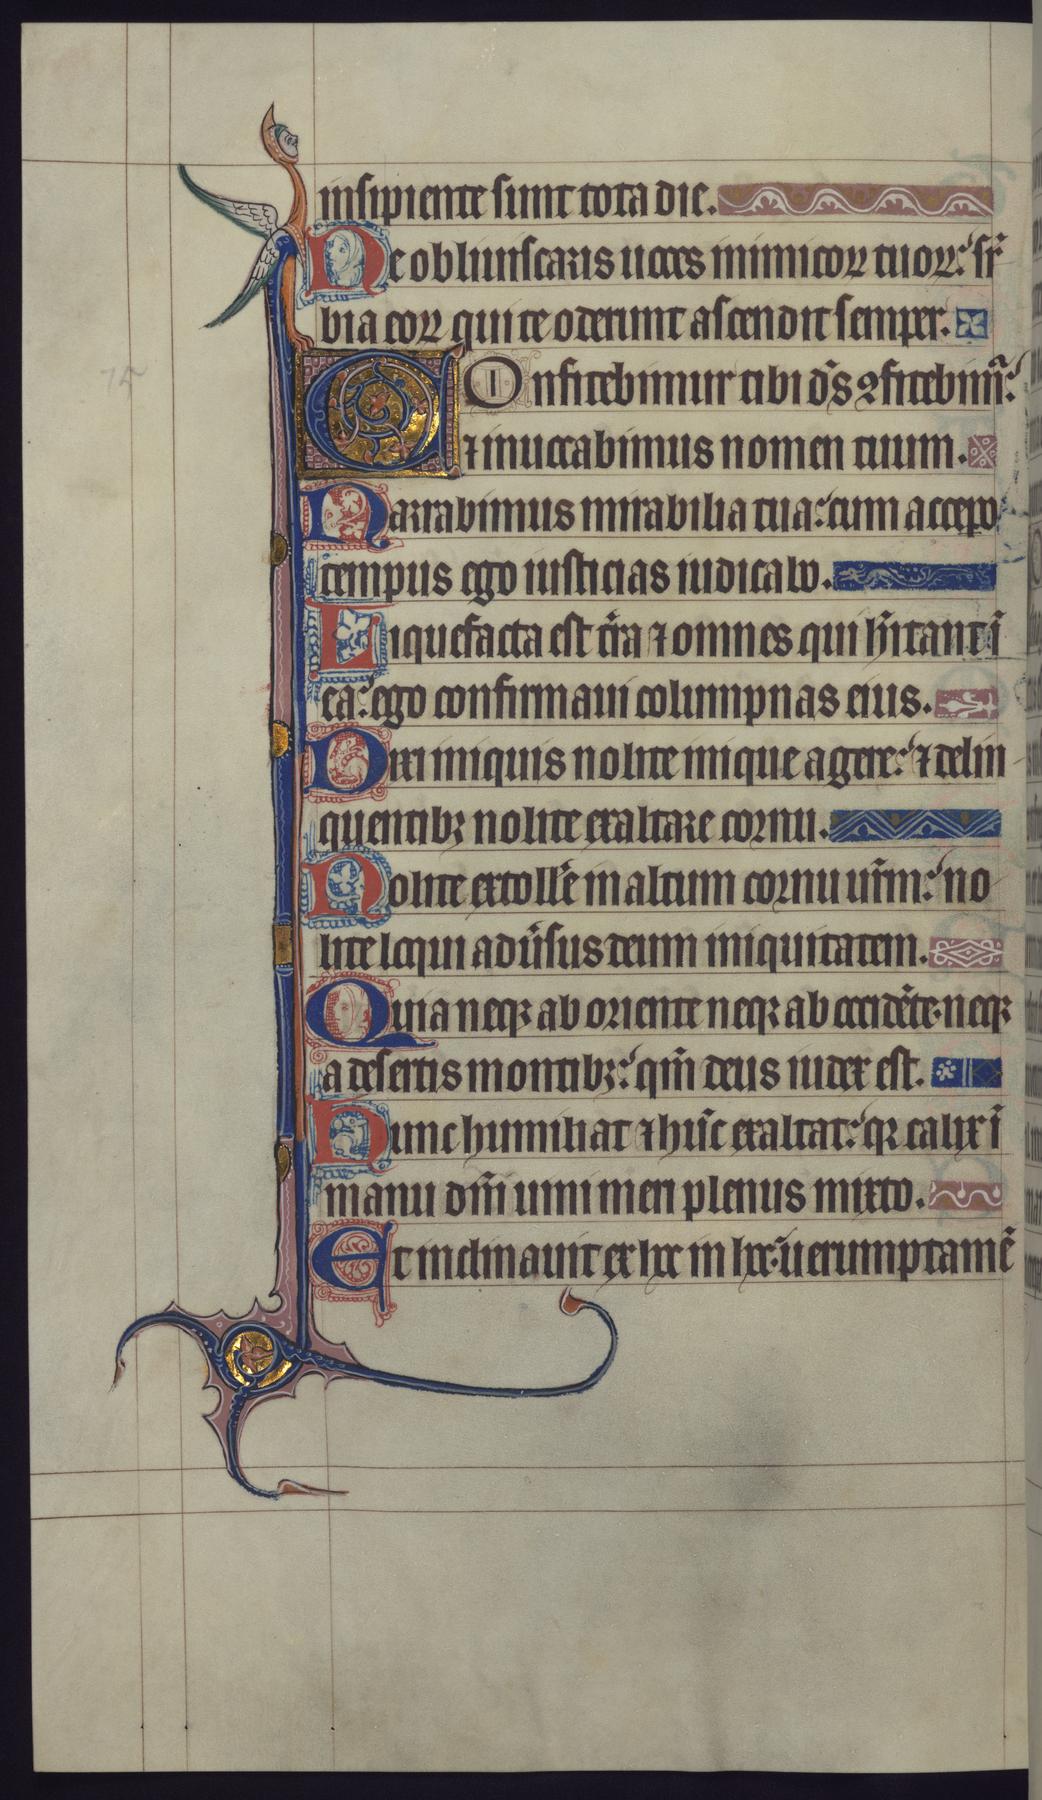 insipiente sunt tota die.
Ne obliuiscaris uoces inimicoꝝ tuoꝝ: suꝑ
bia eoꝝ qui te oderunt ascendit semper.
COnfitebimur tibi ds̄ ꝯfitebimur̄:
⁊ inuocabimus nomen tuum.
Narrabimus mirabilia tua: cum accepo
tempus ego iusticias iudicabo.
Liquefacta est t̄ra ⁊ omnes qui h̄itant ī
ea: ego confirmaui columpnas eius.
Dixi iniquis nolite inique agere: ⁊ delin
quentibꝫ nolite exaltare cornu.
Nolite extollẽ in altum cornu ur̄m: no
lite loqui adūsus deum iniquitatem.
Quia neqꝫ ab oriente neqꝫ ab occidẽte neqꝫ
a desertis montibꝫ: qm̄ deus iudex est.
Hunc humiliat ⁊ hūc exaltat: qꝛ calix ī
manu dn̄i uini meri plenus mixto.
Et inclinauit ex hoc in hoc: uerumptamē
75